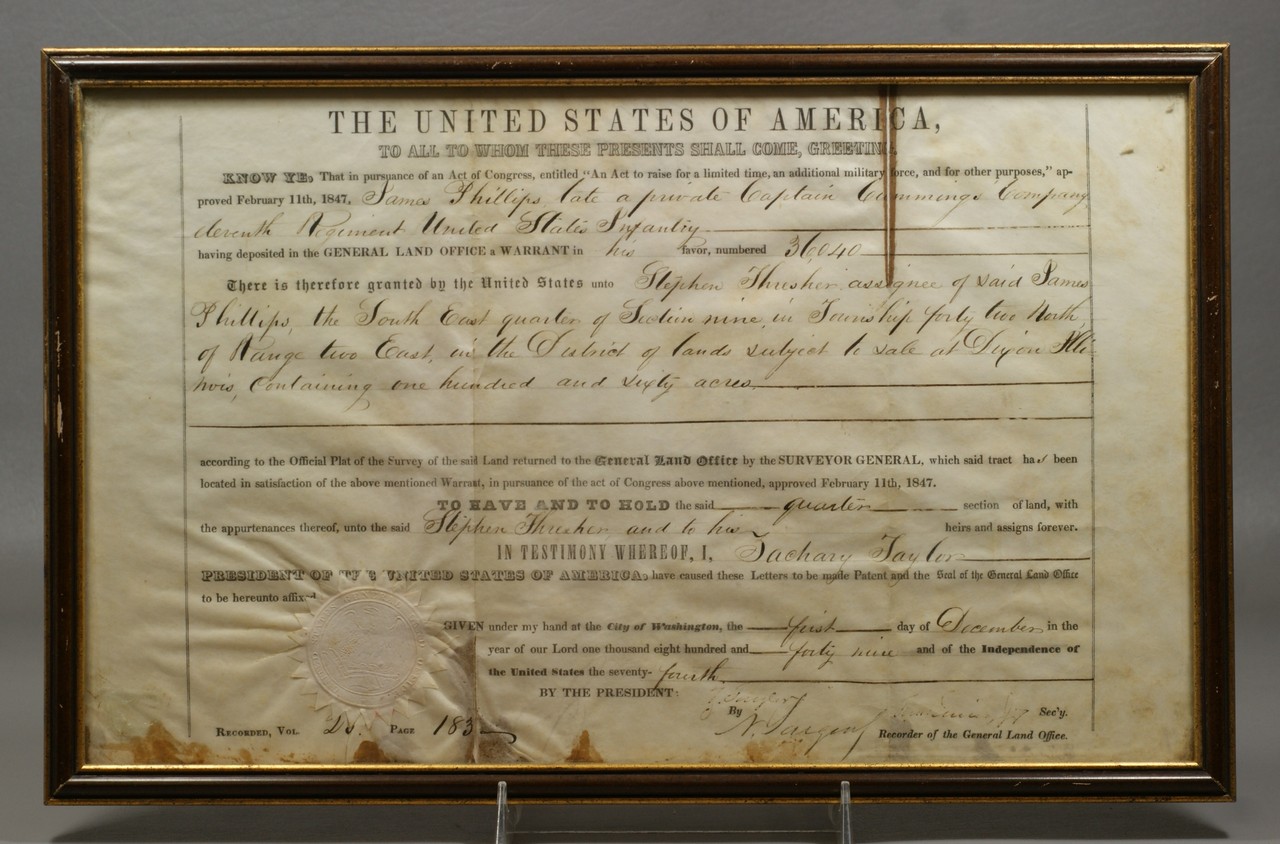 THE UNITED STATES OF AMERICA,
TO ALL TO WHOM THESE PRESENTS SHALL COME, GREETIN
KNOW YE, That in pursuance of an Act of Congress, entitled "An Act to raise for a limited time, an additional military force, and for other purposes," ap-
proved February 11th, 1847, James Phillips, late a private Captain Cummings Company,
Regiment United States Infantry
having deposited in the GENERAL LAND OFFICE a WARRANT in his favor, numbered 36,040
There is therefore granted by the United States unto Stephen Thresher, assignee of said James
Phillips, the South East quarter of Section nine, in Township forty two North,
of Range two East, in the District of lands subject to sale at Dixon Illi-
nois, Containing one hundred and sixty acres.
according to the Official Plat of the Survey of the said Land returned to the General Land Office by the SURVEYOR GENERAL, which said tract has been
located in satisfaction of the above mentioned Warrant, in pursuance of the act of Congress above mentioned, approved February 11th, 1847.
TO HAVE AND TO HOLD the said quarter section of land, with
the appurtenances thereof, unto the said Stephen Thresher, and to his heirs and assigns forever.
IN TESTIMONY WHEREOF, I, Zachary Taylor
PRESIDENT OF THE UNITED STATES OF AMERICA, have caused these Letters to be made Patent and the Seal of the General Land Office
to be hereunto affixed
GIVEN under my hand at the City of Washington, the first day of December in the
year of our Lord one thousand eight hundred and forty nine and of the Independence of
the United States the seventy-fourth.
BY THE PRESIDENT: Z. Taylor
By Sec'y.
RECORDED, VOL. PAGE 183 N. Sargent Recorder of the General Land Office.